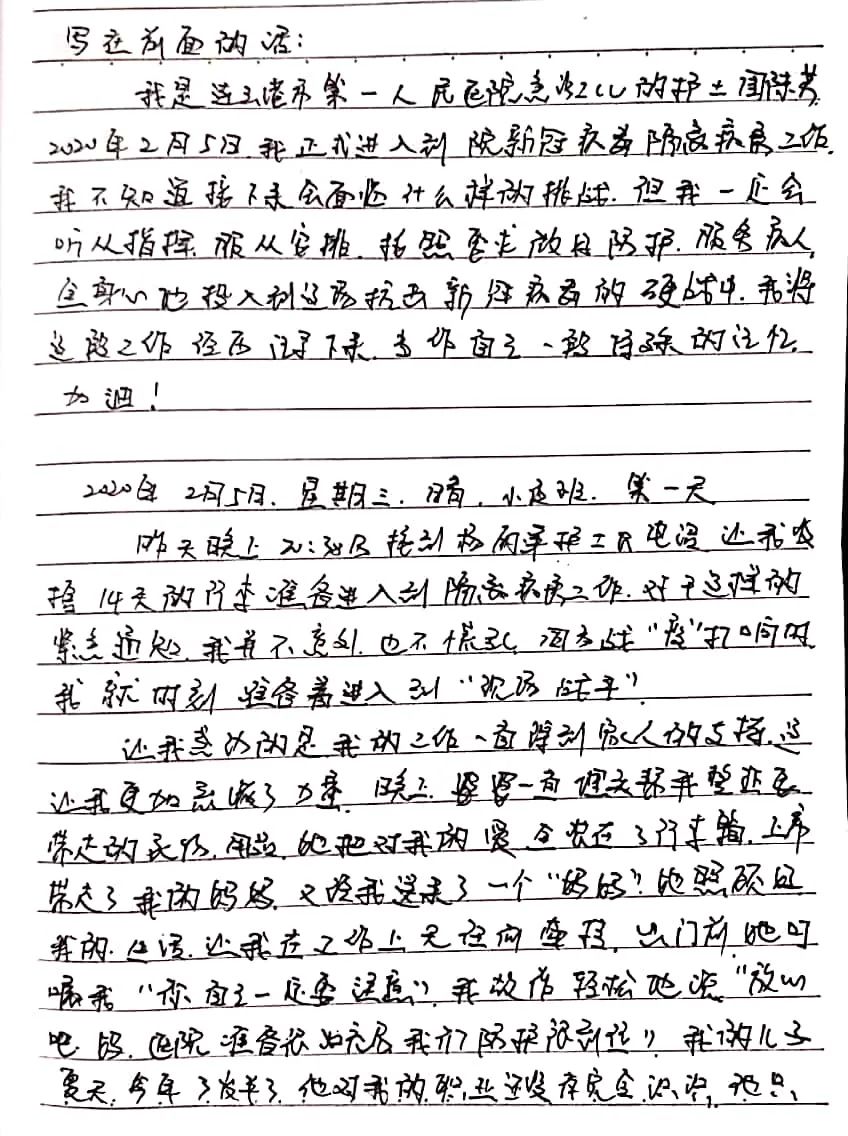 写在前面的话：
我是连云港市第一人民医院急诊ICU的护士周陈芳
2020年2月5日.我正式进入到院新冠病毒隔离病房工作.
我不知道接下来会面临什么样的挑战.但我一定会
听从指挥.服从安排.按照要求做好防护.服务病人,
全身心地投入到这场抗击新冠病毒的硬战中.我将
这段工作经历记录下来.当作自己一段特殊的记忆.
加油！
2020年 2月5日.星期三.晴.小夜班.第一天
昨天晚上20:30接到杨雨军护士长电话 让我收
拾14天的行李准备进入到隔离病房工作.对于这样的
紧急通知,我并不意外.也不慌乱.因为战“疫”打响时
我就时刻准备着进入到“现场战争”.
让我感动的是我的工作一直得到家人的支持.这
让我更加充满了力量.晚上婆婆一直埋头帮我整理要
带走的衣物,用品.她把对我的爱全装在了行李箱.上帝
带走了我的妈妈.又给我送来了一个“妈妈”!她照顾好
我的生活.让我在工作上无任何牵挂.出门前她叮
嘱我“你自己一定要注意”.我故作轻松地说“放心
吧妈.医院准备很充足我们防护很到位”.我的儿子
夏天.今年7岁半了.他对我的职业还没有完全认识.他只,